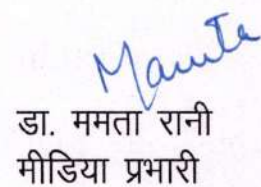 Mamta
डा. ममता रानी
मीडिया प्रभारी